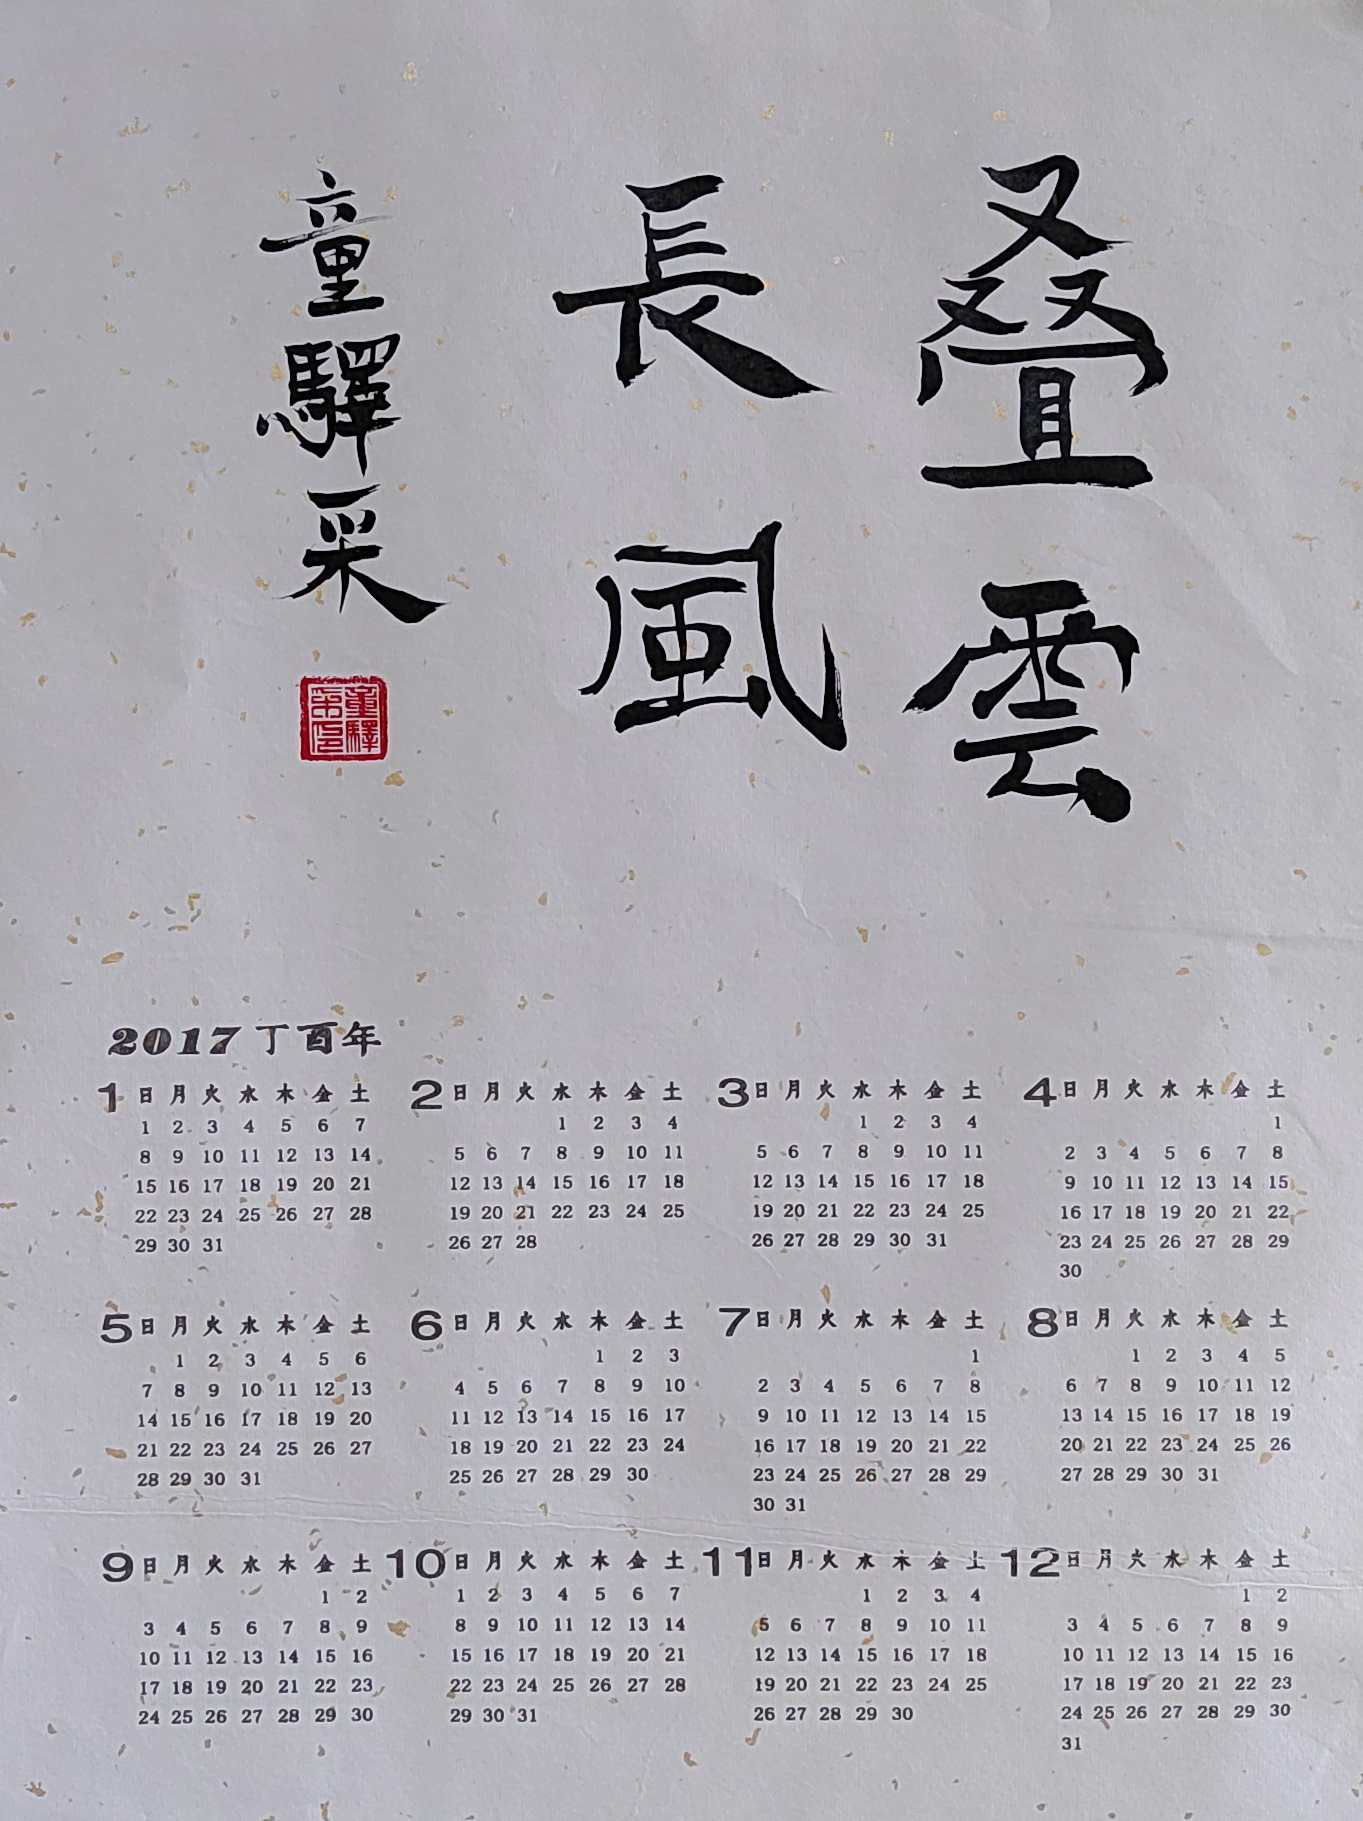 叠雲
長風
童驛采
童驛
采印
2017 丁酉年
1 日 月 火 水 木 金 土
1 2 3 4 5 6 7
8 9 10 11 12 13 14
15 16 17 18 19 20 21
22 23 24 25 26 27 28
29 30 31
2 日 月 火 水 木 金 土
1 2 3 4
5 6 7 8 9 10 11
12 13 14 15 16 17 18
19 20 21 22 23 24 25
26 27 28
3 日 月 火 水 木 金 土
1 2 3 4
5 6 7 8 9 10 11
12 13 14 15 16 17 18
19 20 21 22 23 24 25
26 27 28 29 30 31
4 日 月 火 水 木 金 土
1
2 3 4 5 6 7 8
9 10 11 12 13 14 15
16 17 18 19 20 21 22
23 24 25 26 27 28 29
30
5 日 月 火 水 木 金 土
1 2 3 4 5 6
7 8 9 10 11 12 13
14 15 16 17 18 19 20
21 22 23 24 25 26 27
28 29 30 31
6 日 月 火 水 木 金 土
1 2 3
4 5 6 7 8 9 10
11 12 13 14 15 16 17
18 19 20 21 22 23 24
25 26 27 28 29 30
7 日 月 火 水 木 金 土
1
2 3 4 5 6 7 8
9 10 11 12 13 14 15
16 17 18 19 20 21 22
23 24 25 26 27 28 29
30 31
8 日 月 火 水 木 金 土
1 2 3 4 5
6 7 8 9 10 11 12
13 14 15 16 17 18 19
20 21 22 23 24 25 26
27 28 29 30 31
9 日 月 火 水 木 金 土
1 2
3 4 5 6 7 8 9
10 11 12 13 14 15 16
17 18 19 20 21 22 23
24 25 26 27 28 29 30
10 日 月 火 水 木 金 土
1 2 3 4 5 6 7
8 9 10 11 12 13 14
15 16 17 18 19 20 21
22 23 24 25 26 27 28
29 30 31
11 日 月 火 水 木 金 土
1 2 3 4
5 6 7 8 9 10 11
12 13 14 15 16 17 18
19 20 21 22 23 24 25
26 27 28 29 30
12 日 月 火 水 木 金 土
1 2
3 4 5 6 7 8 9
10 11 12 13 14 15 16
17 18 19 20 21 22 23
24 25 26 27 28 29 30
31